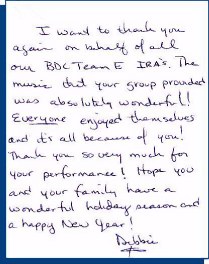 I want to thank you
again on behalf of all
our BDC Team E IRA's. The
music that your group provided
was absolutely wonderful!
Everyone enjoyed themselves
and it's all because of you!
Thank you so very much for
your performance! Hope you
and your family have a
wonderful holiday season and
a happy New Year!
Debbie